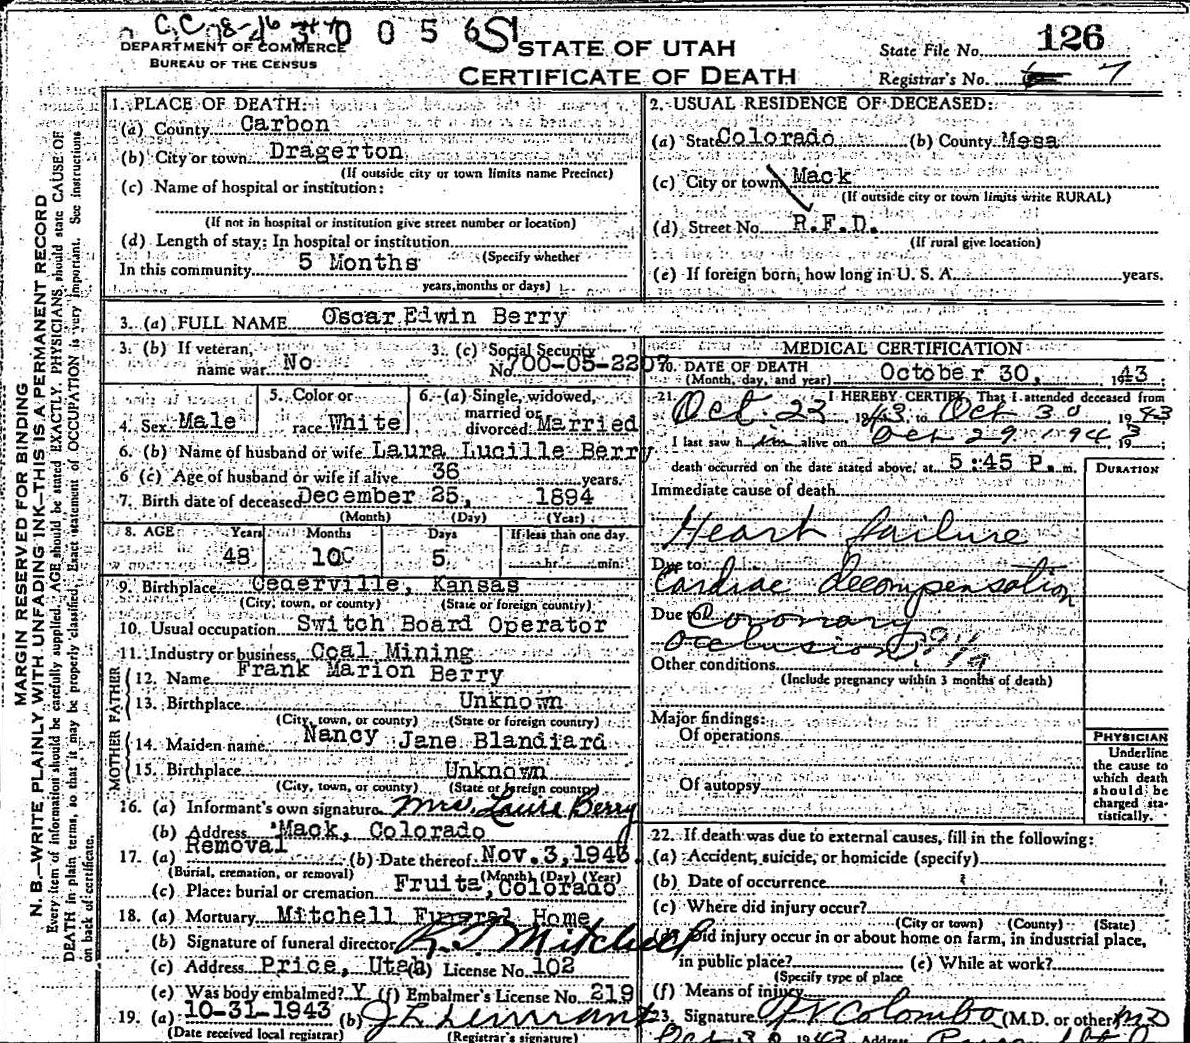 C.C. 78-16 340 0 5 6 SI
DEPARTMENT OF COMMERCE
BUREAU OF THE CENSUS
STATE OF UTAH
CERTIFICATE OF DEATH
State File No. 126
Registrar's No. 7
MARGIN RESERVED FOR BINDING
N. B.—WRITE PLAINLY WITH UNFADING INK—THIS IS A PERMANENT RECORD
Every item of information should be carefully supplied. AGE should be stated EXACTLY. PHYSICIANS should state CAUSE OF
DEATH in plain terms, so that it may be properly classified. Exact statement of OCCUPATION is very important. See instructions
on back of certificate.
1. PLACE OF DEATH:
(a) County Carbon
(b) City or town Dragerton
(If outside city or town limits name Precinct)
(c) Name of hospital or institution:
(If not in hospital or institution give street number or location)
(d) Length of stay: In hospital or institution
(Specify whether
In this community 5 Months
years, months or days)
2. USUAL RESIDENCE OF DECEASED:
(a) State Colorado (b) County Mesa
(c) City or town Mack
(If outside city or town limits write RURAL)
(d) Street No. R.F.D.
(If rural give location)
(e) If foreign born, how long in U. S. A. years.
3. (a) FULL NAME Oscar Edwin Berry
3. (b) If veteran, name war No
3. (c) Social Security No. 700-05-2207
4. Sex Male
5. Color or race White
6. (a) Single, widowed, married or divorced Married
6. (b) Name of husband or wife Laura Lucille Berry
6 (c) Age of husband or wife if alive 36 years.
7. Birth date of deceased December 25, 1894
(Month) (Day) (Year)
8. AGE Years Months Days If less than one day.
48 10 5 hr. min.
9. Birthplace Cederville, Kansas
(City, town, or county) (State or foreign country)
10. Usual occupation Switch Board Operator
11. Industry or business Coal Mining
FATHER
12. Name Frank Marion Berry
13. Birthplace Unknown
(City, town, or county) (State or foreign country)
MOTHER
14. Maiden name Nancy Jane Blandiard
15. Birthplace Unknown
(City, town, or county) (State or foreign country)
16. (a) Informant's own signature Mrs. Laura Berry
(b) Address Mack, Colorado
17. (a) Removal (b) Date thereof Nov. 3, 1943.
(Burial, cremation, or removal) (Month) (Day) (Year)
(c) Place: burial or cremation Fruita, Colorado
18. (a) Mortuary Mitchell Funeral Home
(b) Signature of funeral director R T Mitchell
(c) Address Price, Utah (d) License No. 102
(e) Was body embalmed? Y (f) Embalmer's License No. 219
19. (a) 10-31-1943 (b)
(Date received local registrar) (Registrar's signature)
MEDICAL CERTIFICATION
20. DATE OF DEATH
(Month, day, and year) October 30, 1943.
21. I HEREBY CERTIFY, That I attended deceased from
Oct. 23 1943 to Oct 30 1943
I last saw him alive on Oct 29 1943 19
death occurred on the date stated above, at 5:45 P.m.
DURATION
Immediate cause of death
Heart failure
Due to
Cardiac decompensation
Due to Coronary
occlusion
Other conditions
(Include pregnancy within 3 months of death)
Major findings:
Of operations
Of autopsy
PHYSICIAN
Underline
the cause to
which death
should be
charged sta-
tistically.
22. If death was due to external causes, fill in the following:
(a) Accident, suicide, or homicide (specify)
(b) Date of occurrence
(c) Where did injury occur?
(City or town) (County) (State)
(d) Did injury occur in or about home on farm, in industrial place,
in public place? (e) While at work?
(Specify type of place
(f) Means of injury
23. Signature A V Colombo (M.D. or other) MD
Oct 30 1943 Address